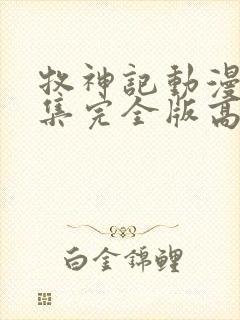 牧神記動漫
集完全版高
白金錦鯉